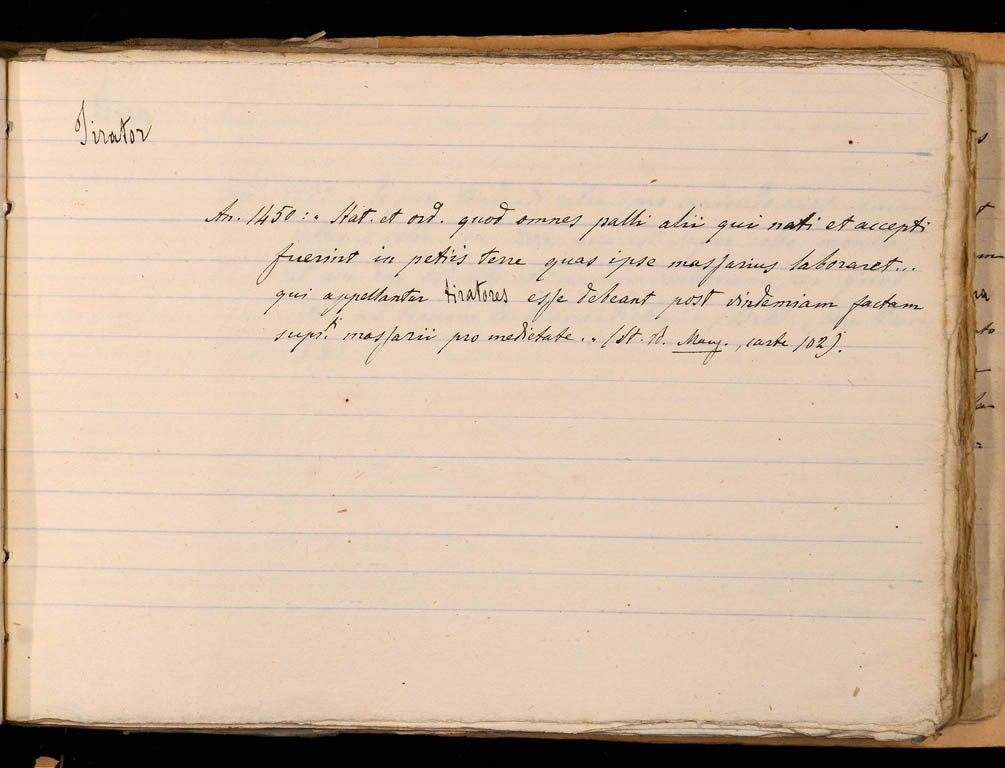 Tirator
An. 1450: „ Stat. et ord. quod omnes palli alii qui nati et accepti
fuerint in petiis terre quas ipse massarius laboraret...
qui appellantur tiratores esse debeant post vindemiam factam
supr.ti massarii pro medietate. „ (St. d. , carte 102).